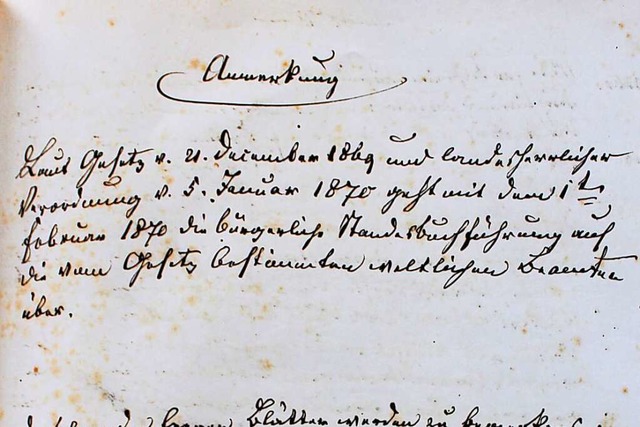 Anmerkung
Laut Gesetz v. 21. December 1869 und landesherrlicher
Verordnung v. 5. Januar 1870 geht mit dem 1t
Februar 1870 die bürgerliche Standesbuchführung auf
die vom Gesetz bestimmten weltlichen Beamten
über.
leeren Blätter werden zu